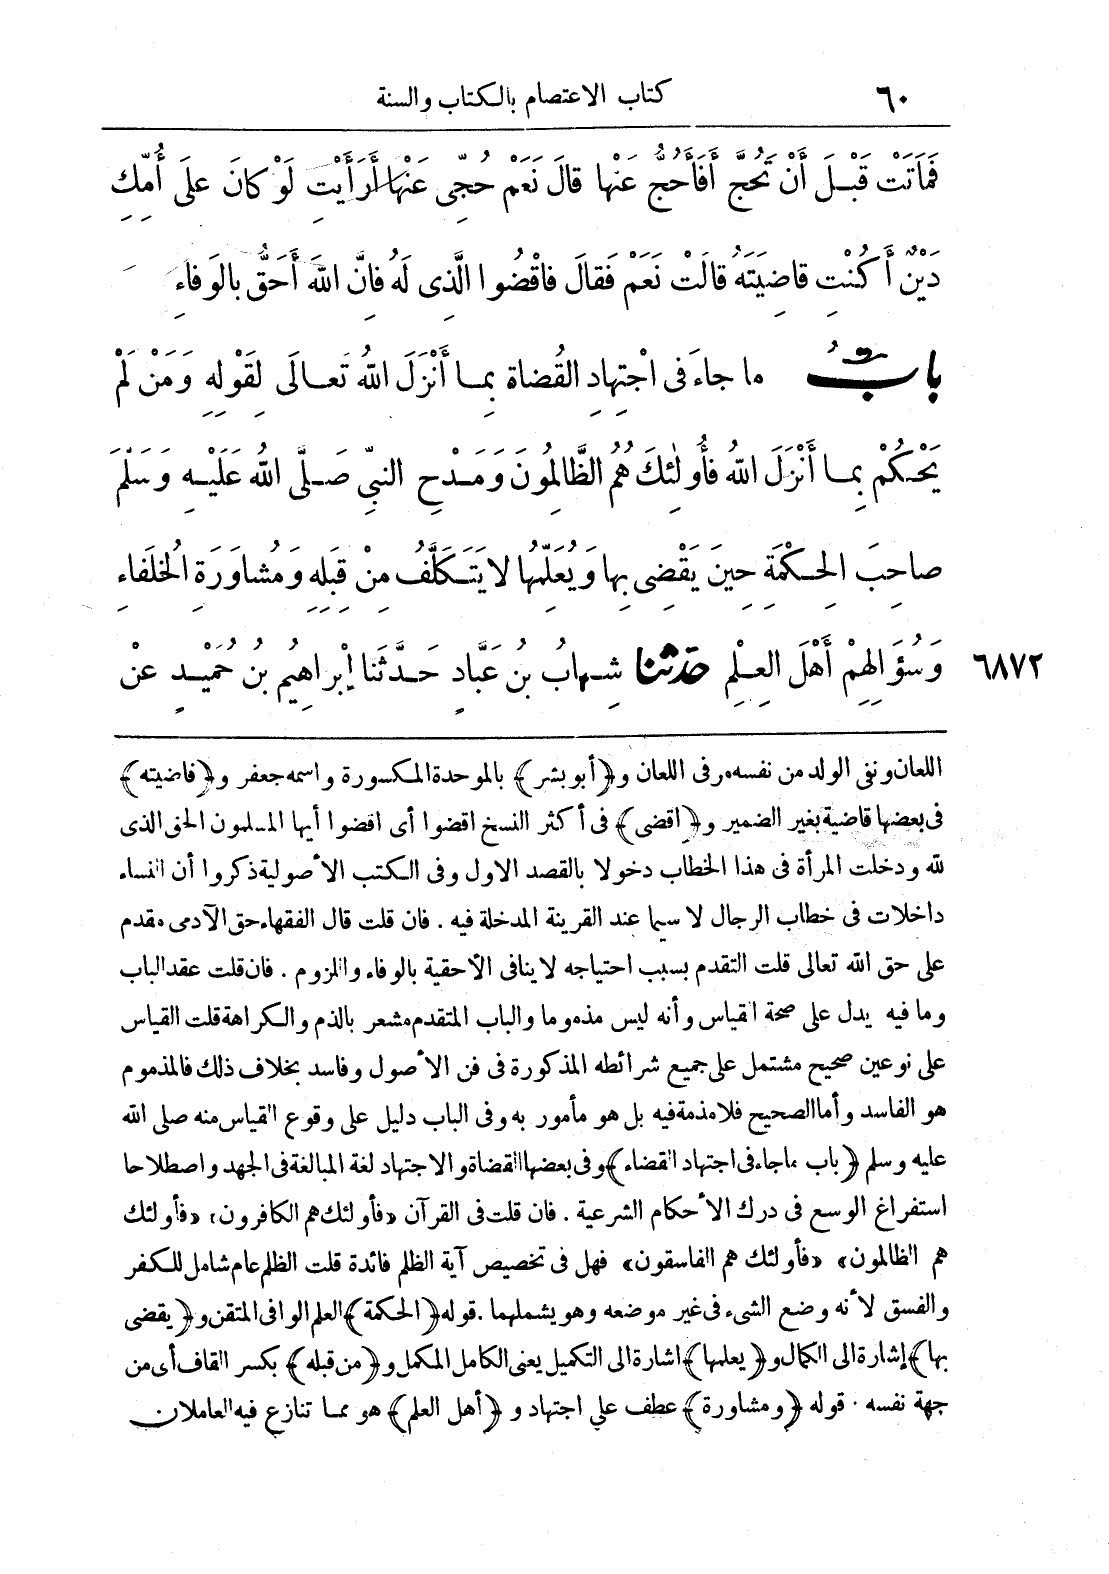 ٦٠ كتاب الاعتصام بالكتاب والسنة
فَمَاتَتْ قَبْلَ أَنْ تَحُجَّ أَفَأَحُجُّ عَنْهَا قالَ نَعَمْ حُجِّى عَنْهَا أَرَأَيْتِ لَوْ كانَ عَلَى أُمِّكِ
دَيْنٌ أَكُنْتِ قاضِيَتَهُ قالَتْ نَعَمْ فَقالَ فاقْضُوا الَّذِى لَهُ فإنَّ اللهَ أَحَقُّ بالوَفاءِ
بابُ ما جاءَ فى اجْتِهادِ القُضاةِ بِمـا أَنْزَلَ اللهُ تَعـالَى لِقَوْلِهِ وَمَنْ لَمْ
يَحْكُمْ بِمـا أَنْزَلَ اللهُ فأُولٰئِكَ هُمُ الظَّالِمُونَ وَمَدْحِ النبىِّ صَلَّى اللهُ عَلَيْهِ وَسَلَّمَ
صاحِبَ الحِكْمَةِ حِينَ يَقْضِى بِها وَيُعَلِّمُها لا يَتَكَلَّفُ مِنْ قِبَلِهِ وَمُشاوَرَةِ الخُلَفاءِ
وَسُؤَالِهِمْ أَهْلَ العِلْمِ حدثنا شِهابُ بنُ عَبَّادٍ حَدَّثَنا إِبراهِيمُ بنُ حُمَيْدٍ عنْ ٦٨٧٢
اللعان ونفى الولد من نفسه مر فى اللعان و﴿أبو بشر﴾ بالموحدة المكسورة واسمه جعفر و﴿قاضيته﴾
فى بعضها قاضية بغير الضمير و﴿اقضى﴾ فى أكثر النسخ اقضوا أى اقضوا أيها المسلمون الحق الذى
لله ودخلت المرأة فى هذا الخطاب دخولا بالقصد الاول وفى الكتب الأصولية ذكروا أن النساء
داخلات فى خطاب الرجال لا سيما عند القرينة المدخلة فيه . فان قلت قال الفقهاء حق الآدمى مقدم
على حق الله تعالى قلت التقدم بسبب احتياجه لا ينافى الأحقية بالوفاء واللزوم . فان قلت عقد الباب
وما فيه يدل على صحة القياس وأنه ليس مذموما والباب المتقدم مشعر بالذم والكراهة قلت القياس
على نوعين صحيح مشتمل على جميع شرائطه المذكورة فى فن الأصول وفاسد بخلاف ذلك فالمذموم
هو الفاسد وأما الصحيح فلا مذمة فيه بل هو مأمور به وفى الباب دليل على وقوع القياس منه صلى الله
عليه وسلم ﴿باب ماجاء فى اجتهاد القضاء﴾ وفى بعضها القضاة والاجتهاد لغة المبالغة فى الجهد واصطلاحا
استفراغ الوسع فى درك الأحكام الشرعية . فان قلت فى القرآن «فأولئك هم الكافرون، «فأولئك
هم الظالمون» «فأولئك هم الفاسقون» فهل فى تخصيص آية الظلم فائدة قلت الظلم عام شامل للكفر
والفسق لأنه وضع الشىء فى غير موضعه وهو يشملهما . قوله ﴿الحكمة﴾ العلم الوافى المتقن و﴿يقضى
بها﴾ إشارة الى الكمال و﴿يعلمها﴾ اشارة الى التكميل يعنى الكامل المكمل و﴿من قبله﴾ بكسر القاف أى من
جهة نفسه . قوله ﴿ومشاورة﴾ عطف على اجتهاد و ﴿أهل العلم﴾ هو مما تنازع فيه العاملان